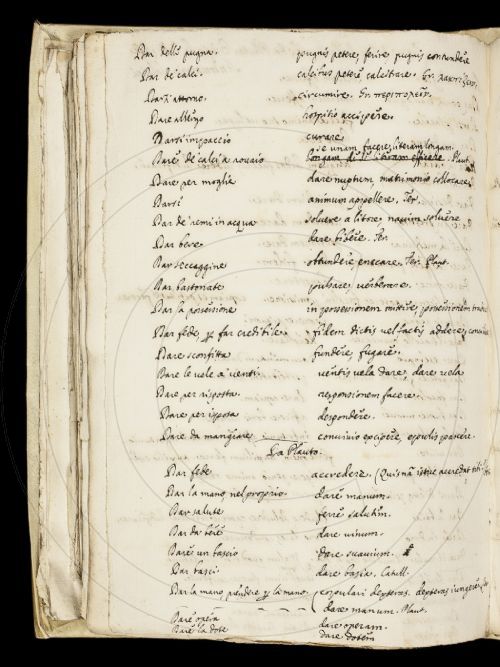 Dar delle pugna. pugnis petere, ferire pugnis contundere
Dar de' calci. calcibus petere calcitrare. Gr. λακτίζειν.
Dar attorno. circumire. Gr. περιπολεῖν.
Dare albergo hospitio accipere.
Darsi impaccio curare
Dare de' calci a rovaio se unam facere literam longam.
longam literam efficere. Plaut.
Dare per moglie dare nuptum, matrimonio collocare,
Darsi animum appellere, Ter.
Dar de' remi in acqua solvere a litore navim solvere
Dar bere dare bibere. Ter.
Dar seccaggine obtundere enecare. Ter. Plaut.
Dar bastonate pulsare, verberare.
Dar la possessione in possessionem mittere, possessionem
Dar fede, far credibile. fidem dictis vel factis addere,
Dare sconfitta fundere, fugare.
Dare le vele a' venti ventis vela dare, dare vela
Dare per risposta. responsionem facere.
Dare per isposa despondere.
Dare da mangiare convivio excipere, epulis pascere.
Da Plauto.
Dar fede accredere. (Quisnam istuc accredat tibi
Dar la mano nel proprio dare manum.
Dar salute ferre salutem.
Dar da bere dare vinum.
Dare un bascio dare suavium.
Dar basci dare basia. Catull.
Dar la mano prendere la mano. copulari dexteras. dexteras iungere.
dare manum. Plaut.
Dare opera dare operam.
Dare la dote dare dotem